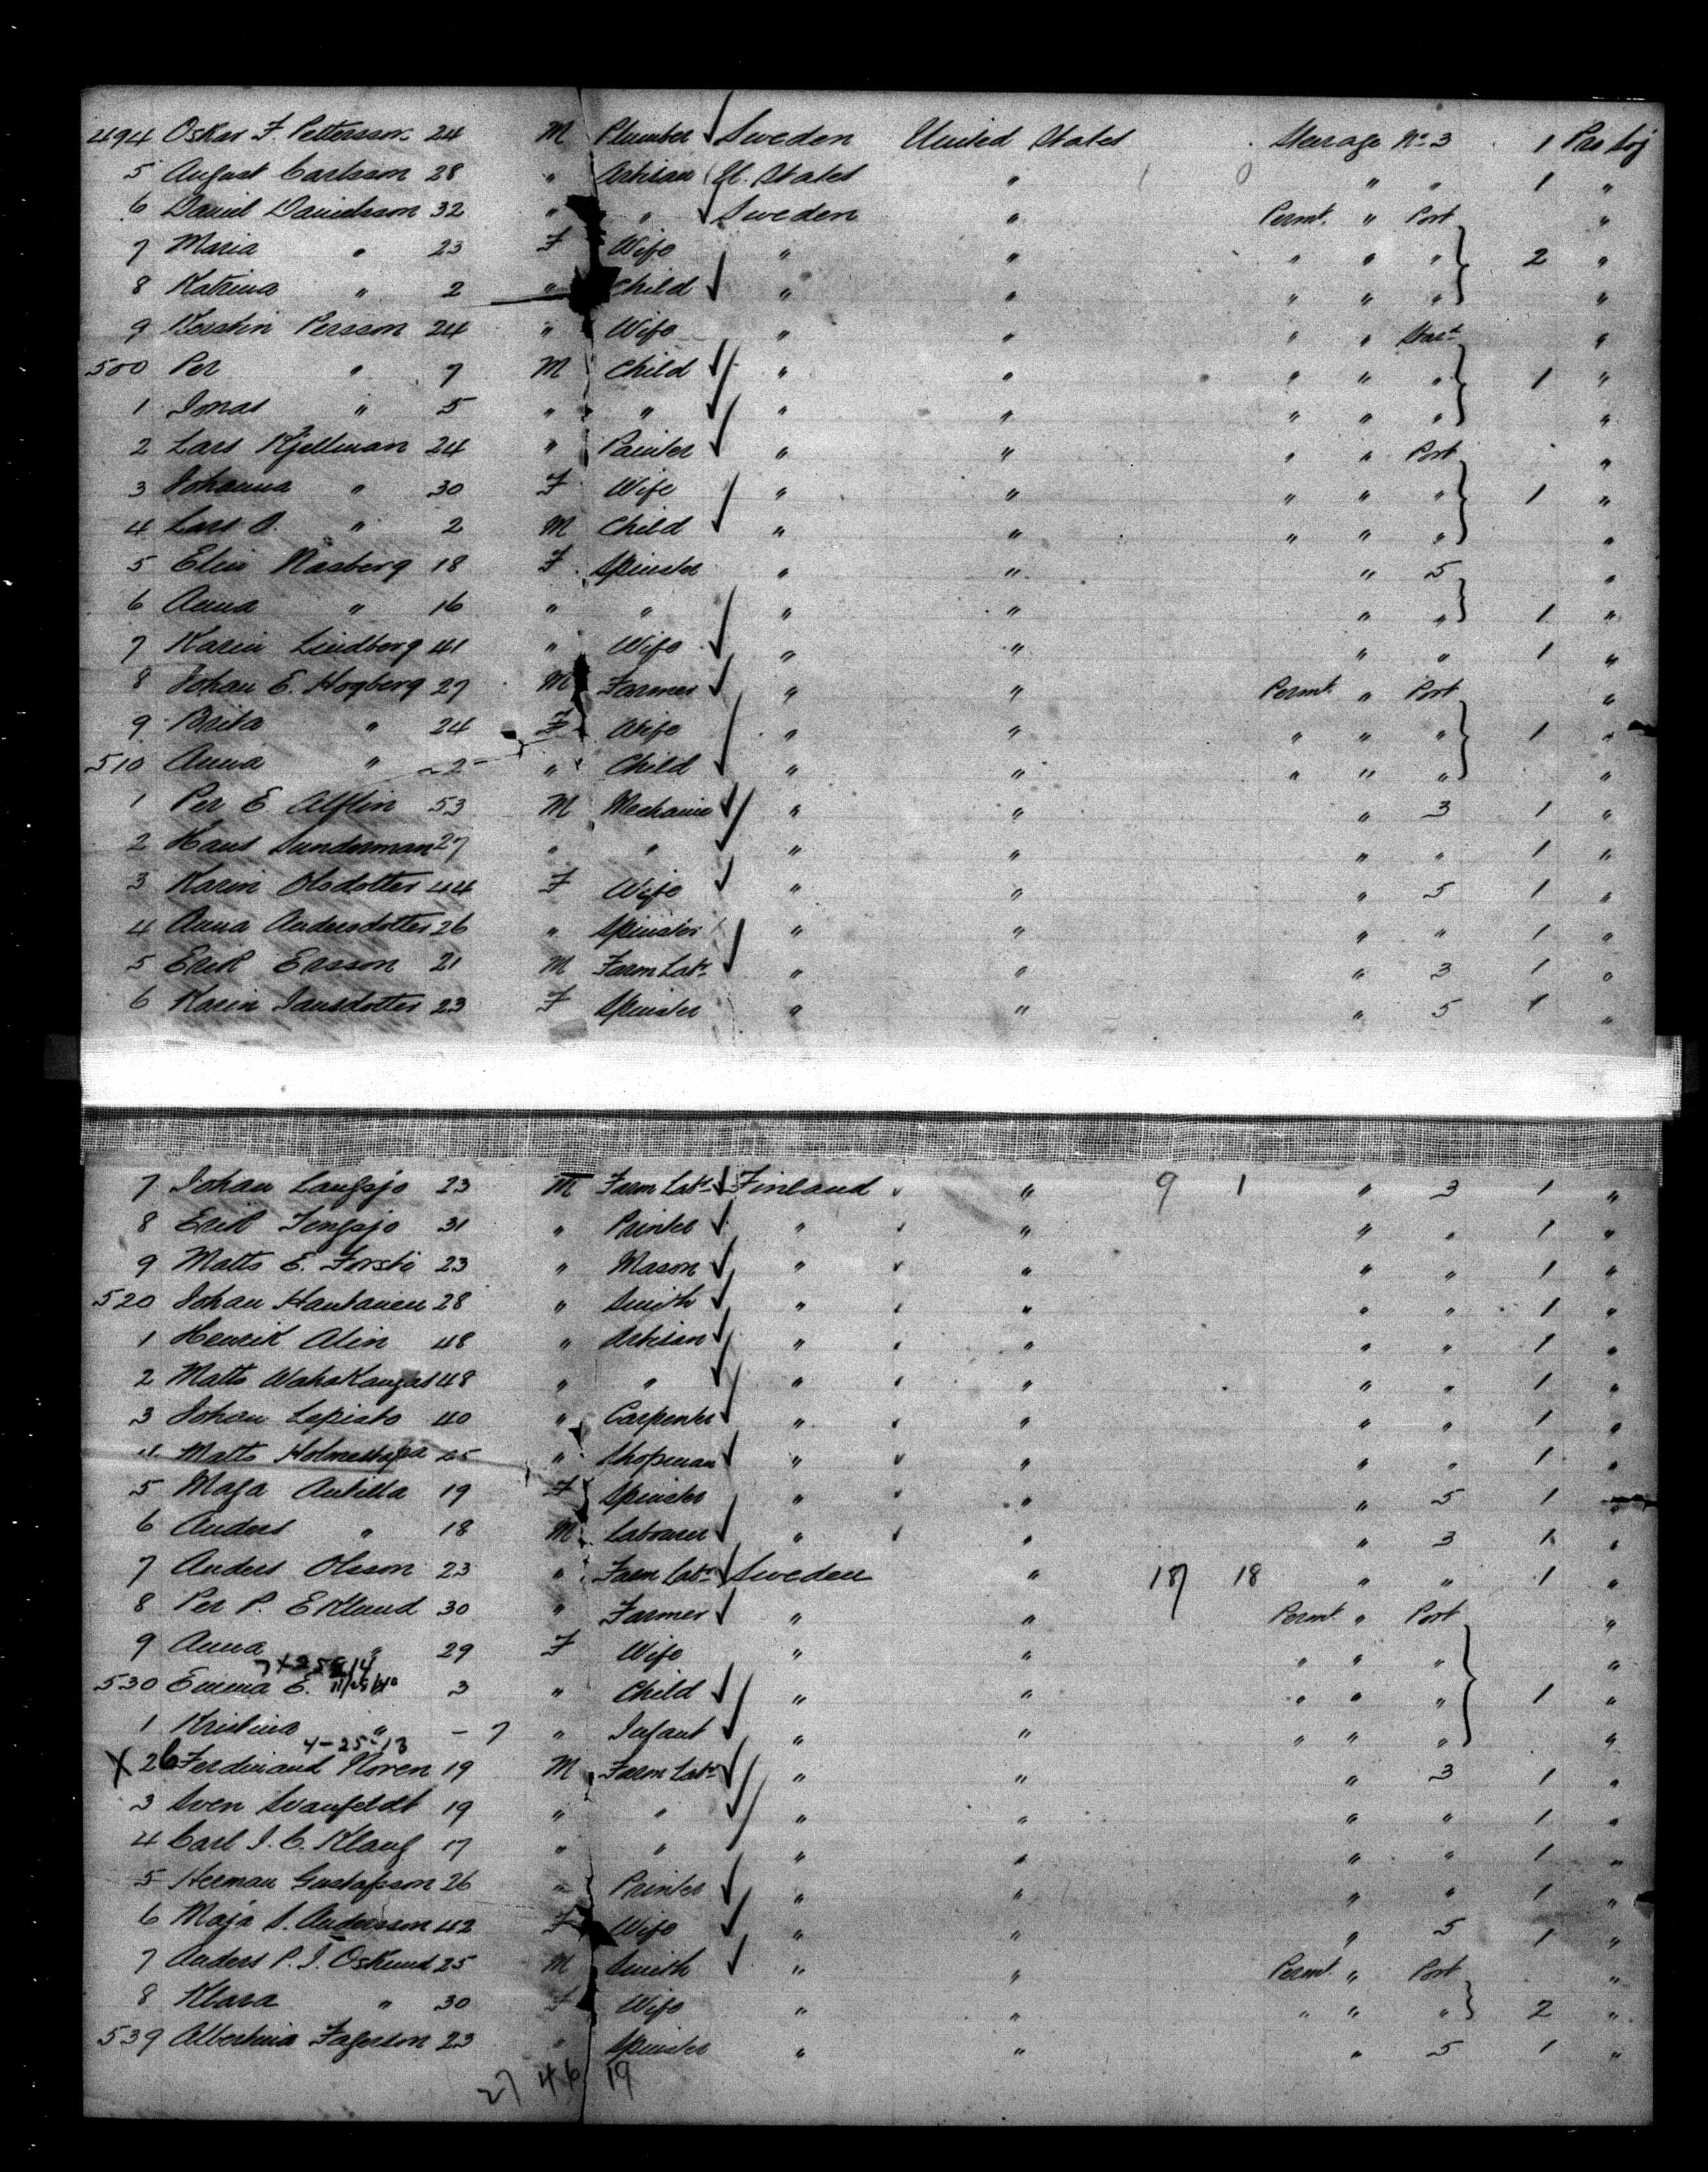 494 Oskar F. Pettersson 24 M Plumber Sweden United States Steerage No 3 1 Pro Soj
5 August Carlsson 28 " Artisan U. States " " " 1 "
6 Daniel Danielsson 32 " " Sweden " Permt. " Port "
7 Maria " 23 F Wife " " " " " 2 "
8 Katrina " 2 " Child " " " " " "
9 Kerstin Persson 24 " Wife " " " " Starb "
500 Per " 7 M Child " " " " " 1 "
1 Jonas " 5 " " " " " " " "
2 Lars Kjellman 24 " Painter " " " " Port "
3 Johanna " 30 F Wife " " " " " 1 "
4 Lars O. " 2 M Child " " " " " "
5 Elin Nasberg 18 F Spinster " " " 5 "
6 Anna " 16 " " " " " " 1 "
7 Karin Lindberg 41 " Wife " " " " 1 "
8 Johan E. Hogberg 27 M Farmer " " Permt. " Port "
9 Brita " 24 F Wife " " " " " 1 "
510 Anna " 2 " Child " " " " " "
1 Per E. Alflin 53 M Mechanic " " " 3 1 "
2 Hans Sunderman 27 " " " " " " 1 "
3 Karin Olsdotter 44 F Wife " " " 5 1 "
4 Anna Andersdotter 26 " Spinster " " " " 1 "
5 Erik Ersson 21 M Farm Labr " " " 3 1 "
6 Karin Jansdotter 23 F Spinster " " " 5 1 "
7 Johan Langsjo 23 M Farm Labr Finland " 9 1 " 3 1 "
8 Erik Tengsjo 31 " Printer " " " " 1 "
9 Matts E. Forsti 23 " Mason " " " " 1 "
520 Johan Hautanen 28 " Smith " " " " 1 "
1 Henrik Alin 48 " Artisan " " " " 1 "
2 Matts Wahakangas 48 " " " " " " 1 "
3 Johan Lepisto 40 " Carpenter " " " " 1 "
4 Matts 25 " Shopman " " " " 1 "
5 Maja Antilla 19 F Spinster " " " 5 1 "
6 Anders " 18 M Labourer " " " 3 1 "
7 Anders Olsson 23 " Farm Labr Sweden " 187 18 " " 1 "
8 Per P. Eklund 30 " Farmer " " Permt " Port "
9 Anna " 29 F Wife " " " " " "
530 Emma E. 3 " Child " " " " " 1 "
1 Kristina " - 7 " Infant " " " " " "
4-25-13
X 2 Ferdinand Noren 19 M Farm Labr " " " 3 1 "
3 Sven Svanfeldt 19 " " " " " " 1 "
4 Carl J. C. Klang 17 " " " " " " 1 "
5 Herman Gustafsson 26 " Printer " " " " 1 "
6 Maja S. Andersson 42 F Wife " " " 5 1 "
7 Anders P. J. Oskund 25 M Smith " " Permt. " Port "
8 Klara " 30 F Wife " " " " " 2 "
539 Albertina Fagerson 23 " Spinster " " " 5 1 "
27 46 19